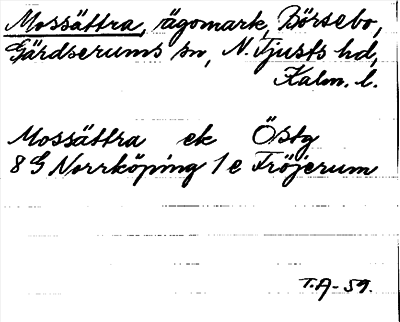 Mossättra, ägomark, Börsebo,
Gärdserums sn, N. Tjusts hd,
Kalm. l.
Mossättra ek Östg
8 G Norrköping 1 e Fröjerum
T.A-59.